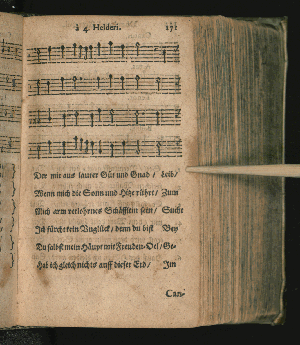 à 4. Helderi. 171
Der mir aus lauter Güt und Gnad / Leib /
Wenn mich die Sonn und Hitze rühret / Zum
Mich arm verlohrnes Schäfflein sein / Sucht
Ich fürcht kein Unglück / denn du bist Bey
Du salbst mein Häupt mit Freuden-Oel / Ge-
Hab ich gleich nichts auff dieser Erd / Im
Can-